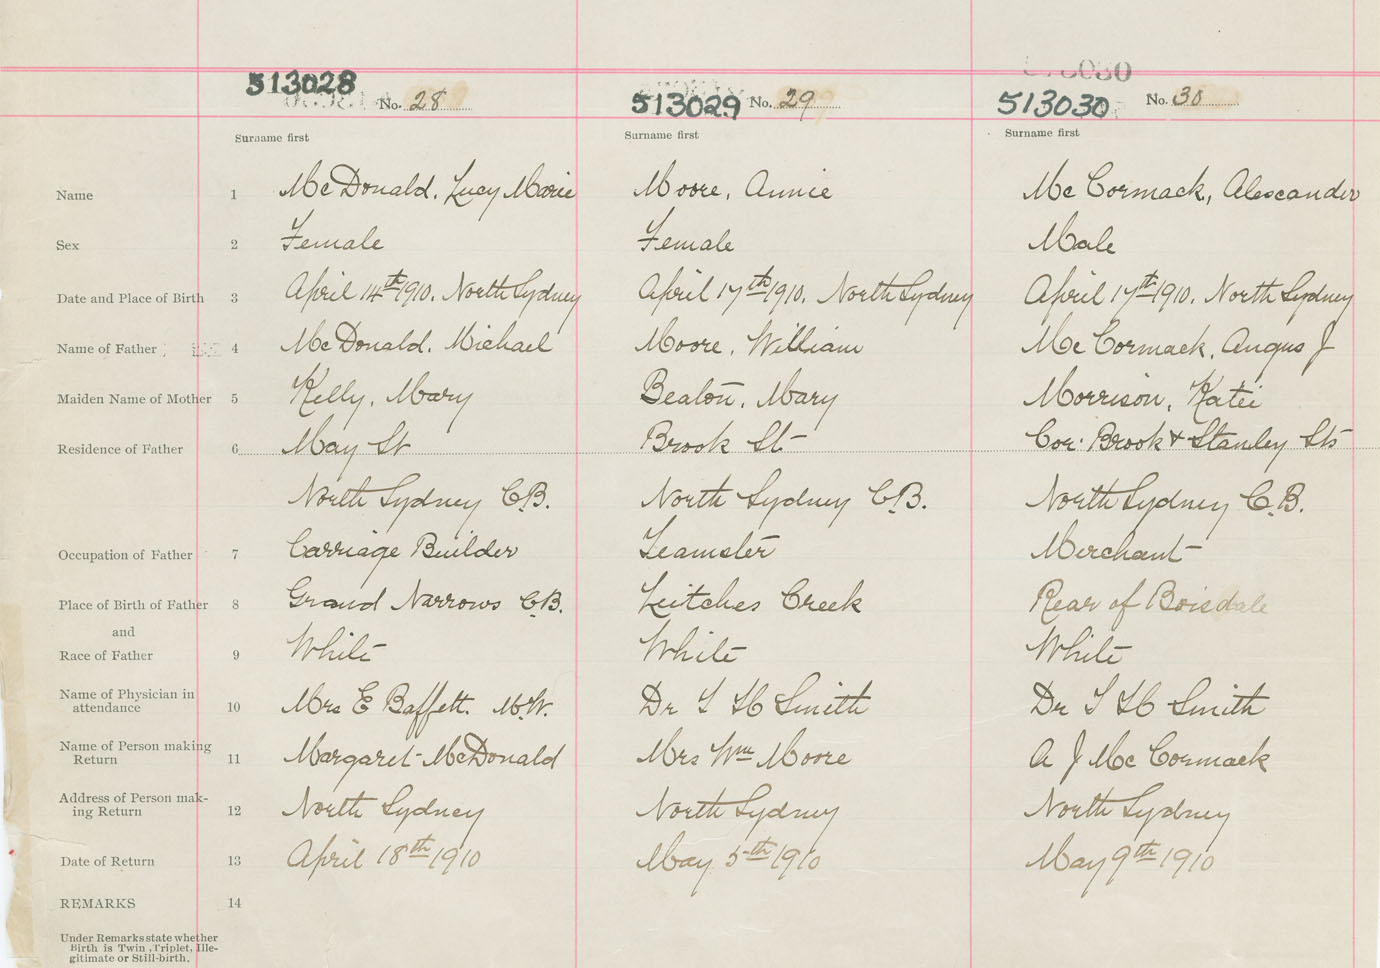 513028 No. 28 513029 No. 29 513030 No. 30
Surname first Surname first Surname first
Name 1 McDonald, Lucy Marie Moore, Annie McCormack, Alexcander
Sex 2 Female Female Male
Date and Place of Birth 3 April 14th 1910. North Sydney April 17th 1910. North Sydney April 17th 1910. North Sydney
Name of Father 4 McDonald. Michael Moore, William McCormack, Angus J
Maiden Name of Mother 5 Kelly, Mary Beaton, Mary Morrison, Katie
Residence of Father 6 May St Brook St Cor. Brook & Stanley Sts
North Sydney C.B. North Sydney C.B. North Sydney C.B.
Occupation of Father 7 Carriage Builder Teamster Merchant
Place of Birth of Father 8 Grand Narrows C.B. Leitches Creek Rear of Boisdale
and
Race of Father 9 White White White
Name of Physician in
attendance 10 Mrs E Baffett. M.W. Dr T H Smith Dr T H Smith
Name of Person making
Return 11 Margaret McDonald Mrs Wm Moore A J McCormack
Address of Person mak-
ing Return 12 North Sydney North Sydney North Sydney
Date of Return 13 April 18th 1910 May 5th 1910 May 9th 1910
REMARKS 14
Under Remarks state whether
Birth is Twin, Triplet, Ille-
gitimate or Still-birth.